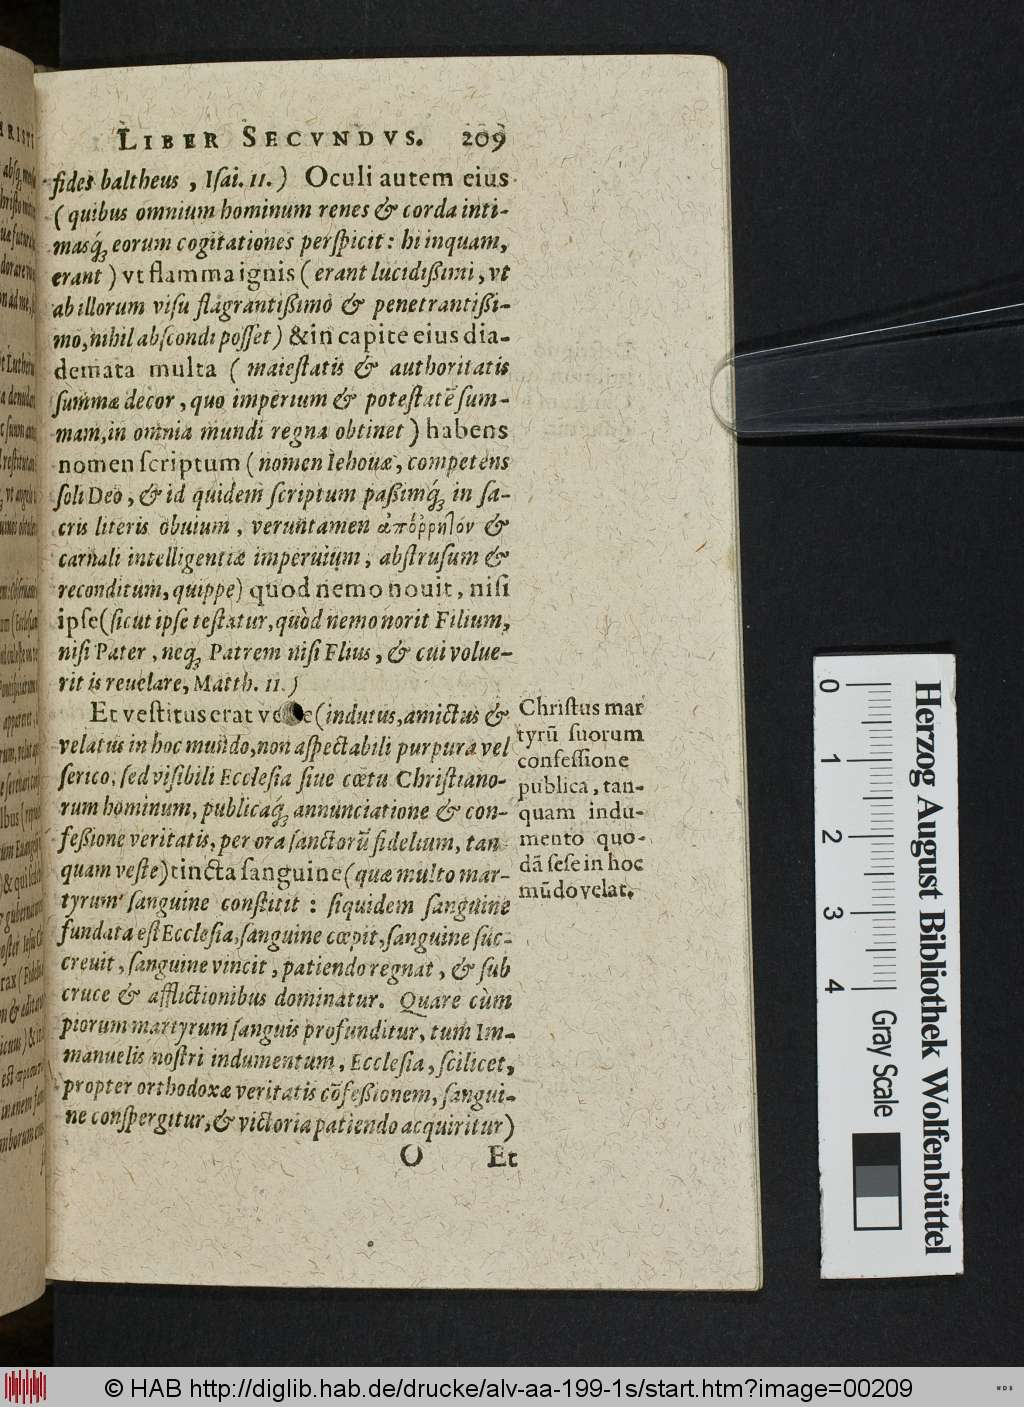 LIBER SECVNDVS. 209
fides baltheus, Isai. 11.) Oculi autem eius
(quibus omnium hominum renes & corda inti-
masq́ꝫ eorum cogitationes perspicit: hi inquam,
erant) vt flamma ignis (erant lucidißimi, vt
ab illorum visu flagrantißimo & penetrantißi-
mo, nihil abscondi posset) & in capite eius dia-
demata multa (maiestatis & authoritatis
summæ decor, quo imperium & potestatē sum-
mam, in omnia mundi regna obtinet) habens
nomen scriptum (nomen Iehouæ, competens
soli Deo, & id quidem scriptum paßimq́ꝫ in sa-
cris literis obuium, veruntamen ἀπόῤῥητόν &
carnali intelligentiæ imperuium, abstrusum &
reconditum, quippe) quod nemo nouit, nisi
ipse (sicut ipse testatur, quòd nemo norit Filium,
nisi Pater, neqꝫ Patrem nisi Flius, & cui volue-
rit is reuelare, Matth. 11.)
Et vestitus erat ve e (indutus, amictus &
velatus in hoc mundo, non aspectabili purpura vel
serico, sed visibili Ecclesia siue cœtu Christiano-
rum hominum, publicaq́ꝫ annunciatione & con-
feßione veritatis, per ora sanctorū fidelium, tan
quam veste) tincta sanguine (quæ multo mar-
tyrum sanguine constitit : siquidem sanguine
fundata est Ecclesia, sanguine cœpit, sanguine suc-
creuit, sanguine vincit, patiendo regnat, & sub
cruce & afflictionibus dominatur. Quare cùm
piorum martyrum sanguis profunditur, tum Im-
manuelis nostri indumentum, Ecclesia, scilicet,
propter orthodoxæ veritatis cōfeßionem, sangui-
ne conspergitur, & victoria patiendo acquiritur)
O Et
Christus mar
tyrū suorum
confessione
publica, tan-
quam indu-
mento quo-
dā sese in hoc
mūdo velat.
0
1
2
3
4
Herzog August Bibliothek Wolfenbüttel
Gray Scale
© HAB http://diglib.hab.de/drucke/alv-aa-199-1s/start.htm?image=00209